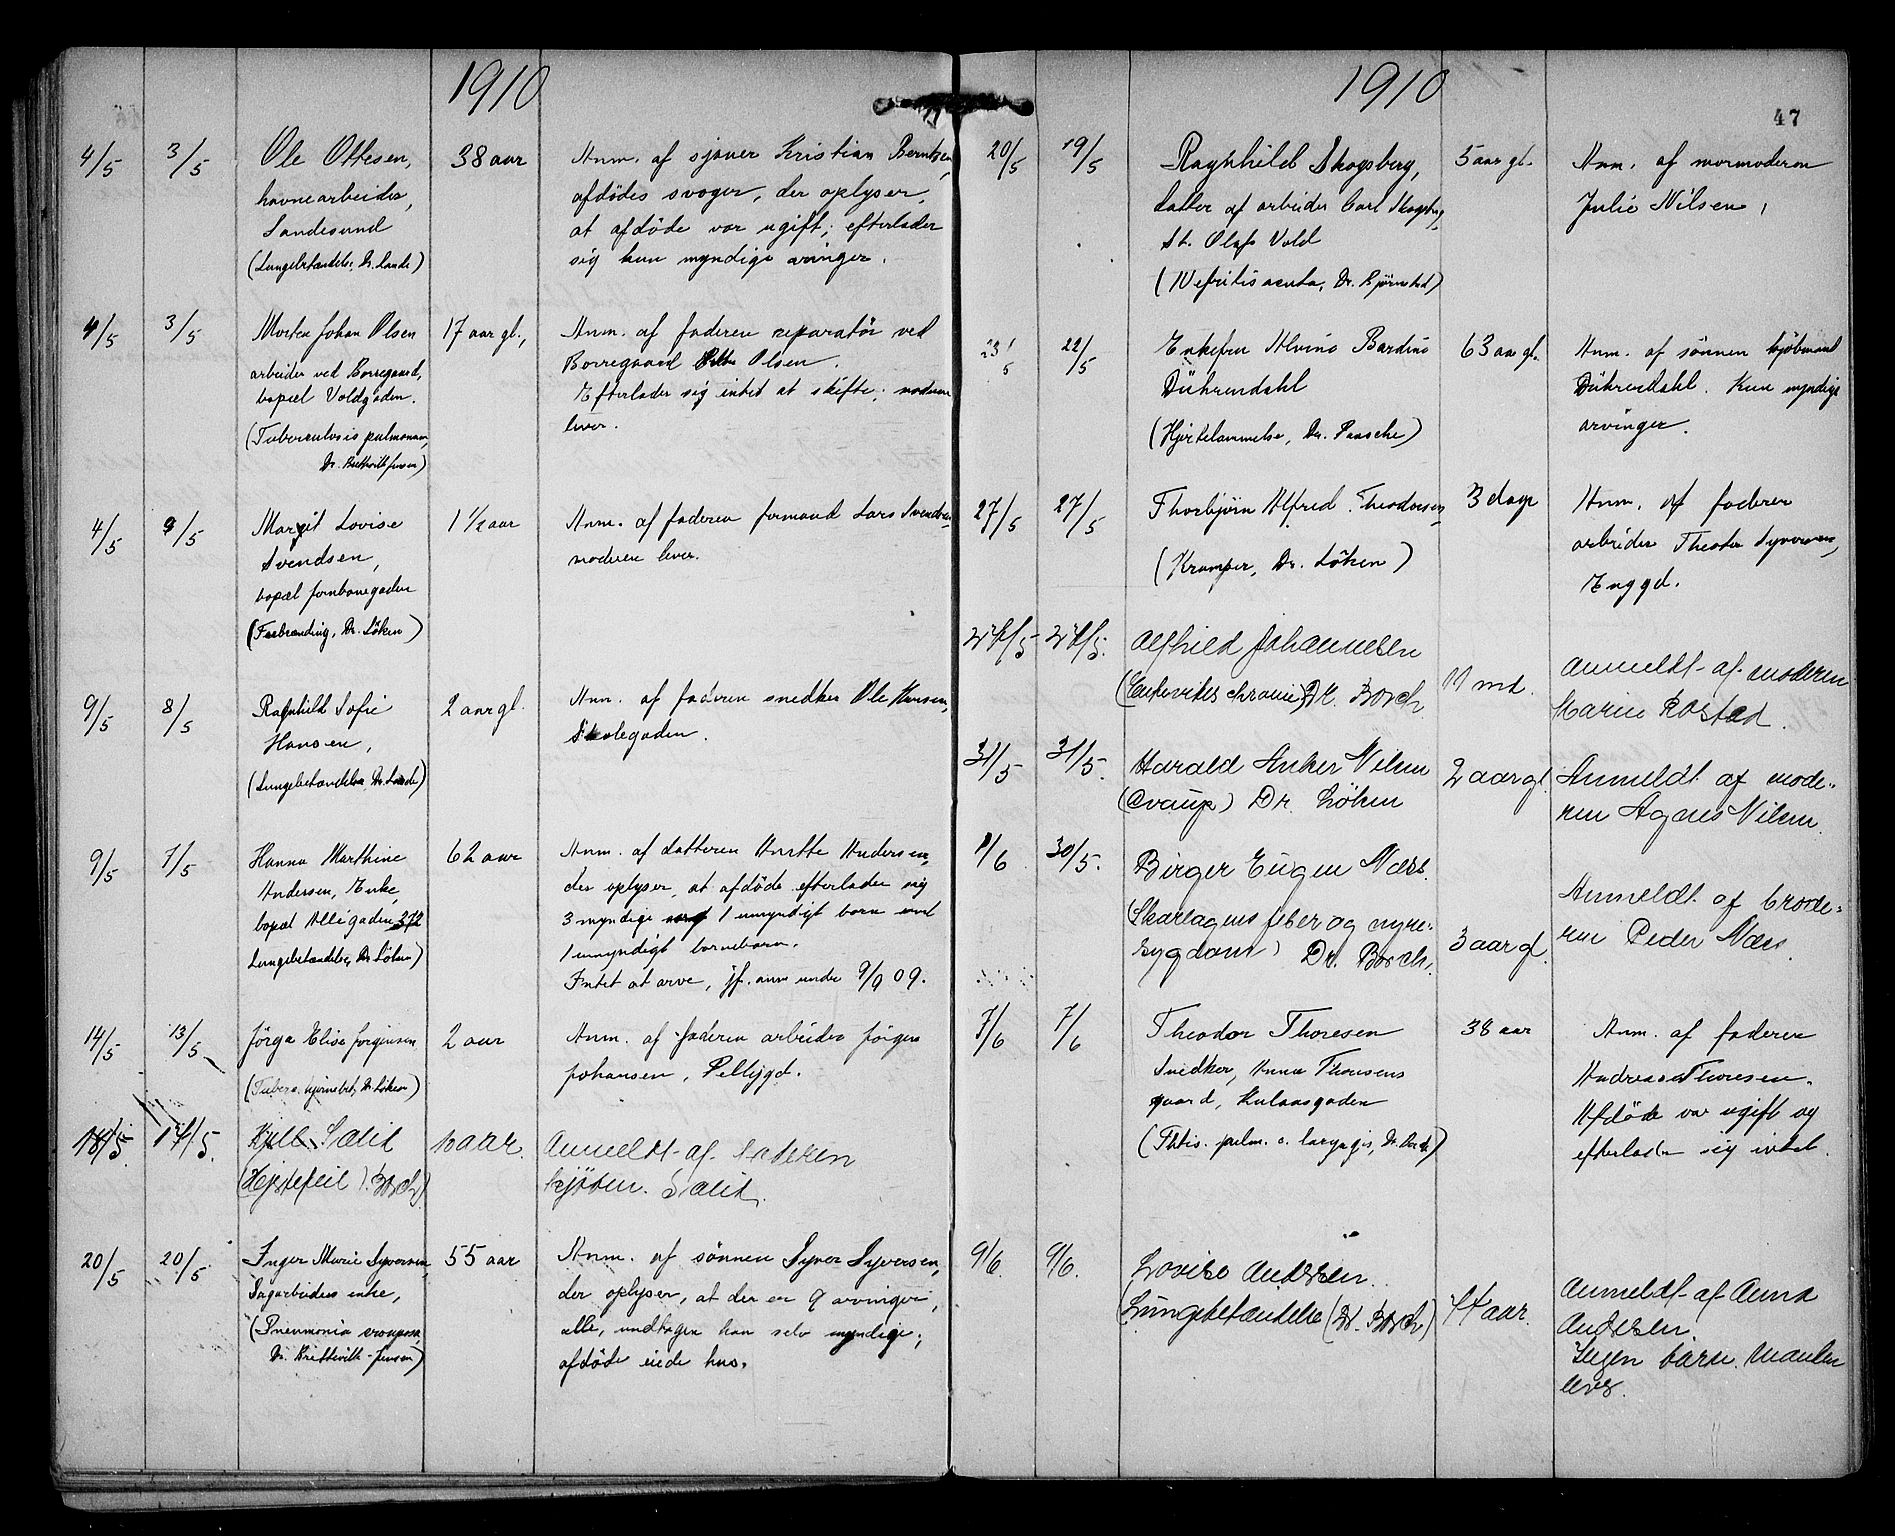 1910
4/5 3/5 Ole Ottesen, 38 aar Anm. af sjauer Kristian Berntsen
havnearbeider, afdødes svoger, der oplyser,
Sandesund at afdøde var ugift; efterlader
(Lungebetændelse, Dr. Lande) sig kun myndige arvinger.
4/5 3/5 Morten Johan Olsen 17 aar gl., Anm. af faderen reparatør ved
arbeider ved Borregaard, Borregaard Olsen.
bopæl Voldgaden. Efterlader sig intet at skifte; moderen
(Tuberculosis pulmonum, lever.
Dr. Bretteville Jensen)
4/5 4/5 Margit Lovise 1 1/2 aar Anm. af faderen formand Lars Svendsen
Svendsen, moderen lever.
bopæl Jernbanegaden
(Forbrænding, Dr. Løken)
9/5 8/5 Ragnhild Sofie 2 aar gl. Anm. af faderen snedker Ole Hansen,
Hansen, Skolegaden.
(Lungebetændelse, Dr. Lande)
9/5 7/5 Hanna Marthine 62 aar Anm. af datteren Anette Andersen,
Andersen, Enke, der oplyser, at afdøde efterlader sig
bopæl Allegaden 372 3 myndige 1 umyndigt barn samt
Lungebetændelse, Dr. Løken) 1 umyndigt barnebarn.
Intet at arve, jf. anm under 9/9 09.
14/5 13/5 Jørga Elise Jørgensen 2 aar Anm. af faderen arbeider Jørgen
(Tuberc. hjernebet, Dr. Løken) Johansen, Pellygd.
18/5 17/5. Kjell Sælid 10 aar. Anmeldt af faderen
(Hjertefeil). Borch) kjøbm. Sælid.
20/5 20/5 Inger Marie Syversen, 55 aar Anm. af sønnen Syver Syversen,
Sagarbeiders enke, der oplyser, at der er 9 arvinger,
(Pneumonia crouposa, alle, undtagen han selv myndige;
Dr. Bretteville-Jensen) afdøde eiede hus.
1910
47
20/5 19/5 Ragnhild Skogsberg, 5 aar gl. Anm. af mormoderen
datter af arbeider Carl Skogsberg, Julie Nilsen,
St. Olafs Vold
(Nefritis acuta, Dr. Bjørnstad)
23/5 22/5 Enkefru Alvina Bardine 63 aar gl. Anm. af sønnen kjøbmand
Dührendahl Dührendahl. Kun myndige
(Hjertelammelse, Dr. Paasche) arvinger.
27/5 27/5 Thorbjørn Alfred Theodorsen 3 dage Anm. af faderen
(Kramper, Dr. Løken) arbeider Theodor Syversen,
Enggd.
28/5 27/5. Alfhild Johannesen 11 md. Anmeldt af moderen
(Enterites chronic) Dr. Borch Marie Rostad.
31/5 31/5. Harald Anker Nilsen 2 aar gl. Anmeldt af mode-
(Croup) Dr. Løken ren Agnes Nilsen.
1/6 30/5. Birger Eugen Næss. 3 aar gl. Anmeldt af brode-
(Skarlagensfeber og nyre- ren Peder Næss.
sygdom) Dr. Borch.
7/6 7/6 Theodor Thoresen 38 aar Anm. af faderen
Snedker, Anna Thoresens Andreas Thoresen.
gaard, Kulaasgaden Afdøde var ugift og
(Ftis. pulm. o. laryngis, Dr. Borch) efterlader sig intet.
9/6. 9/6. Lovise Andersen. 44 aar. Anmeldt af Anna
(Lungebetændelse (Dr. Borch) Andersen.
Ingen børn. Manden
lever.